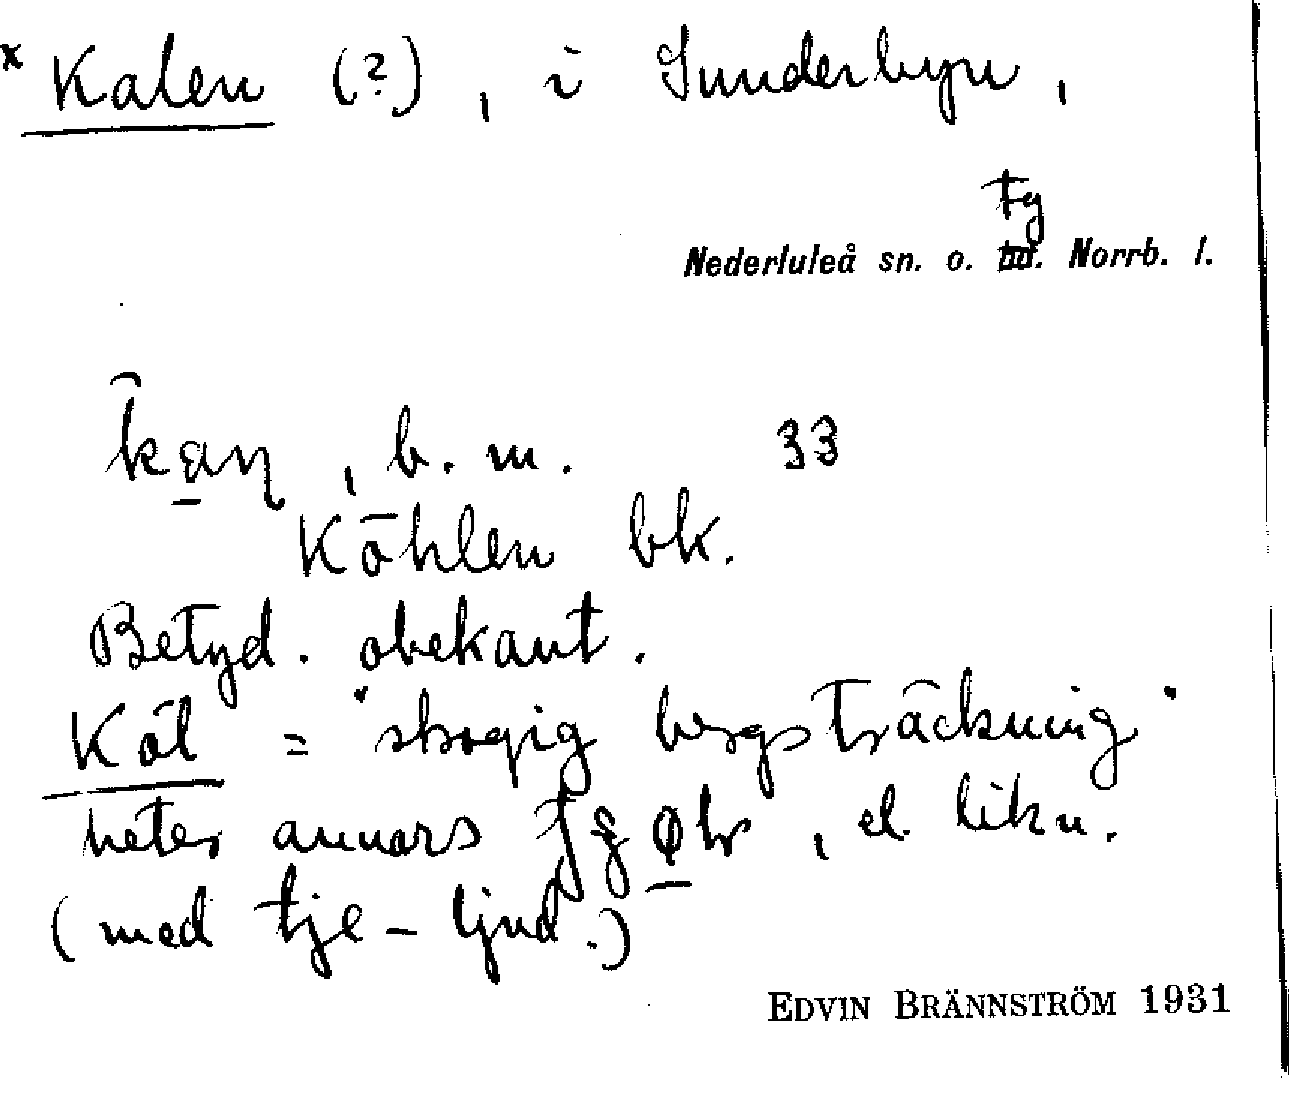 x Kalen (?), i Sunderbyn,
tg
Nederluleå sn. o. Norrb. l.
, b. m. 33
Kōhlen bk.
Betyd. obekant.
Köl = "skogig bergsträckning"
heter annars , el. likn.
(med tje-ljud.)
EDVIN BRÄNNSTRÖM 1931